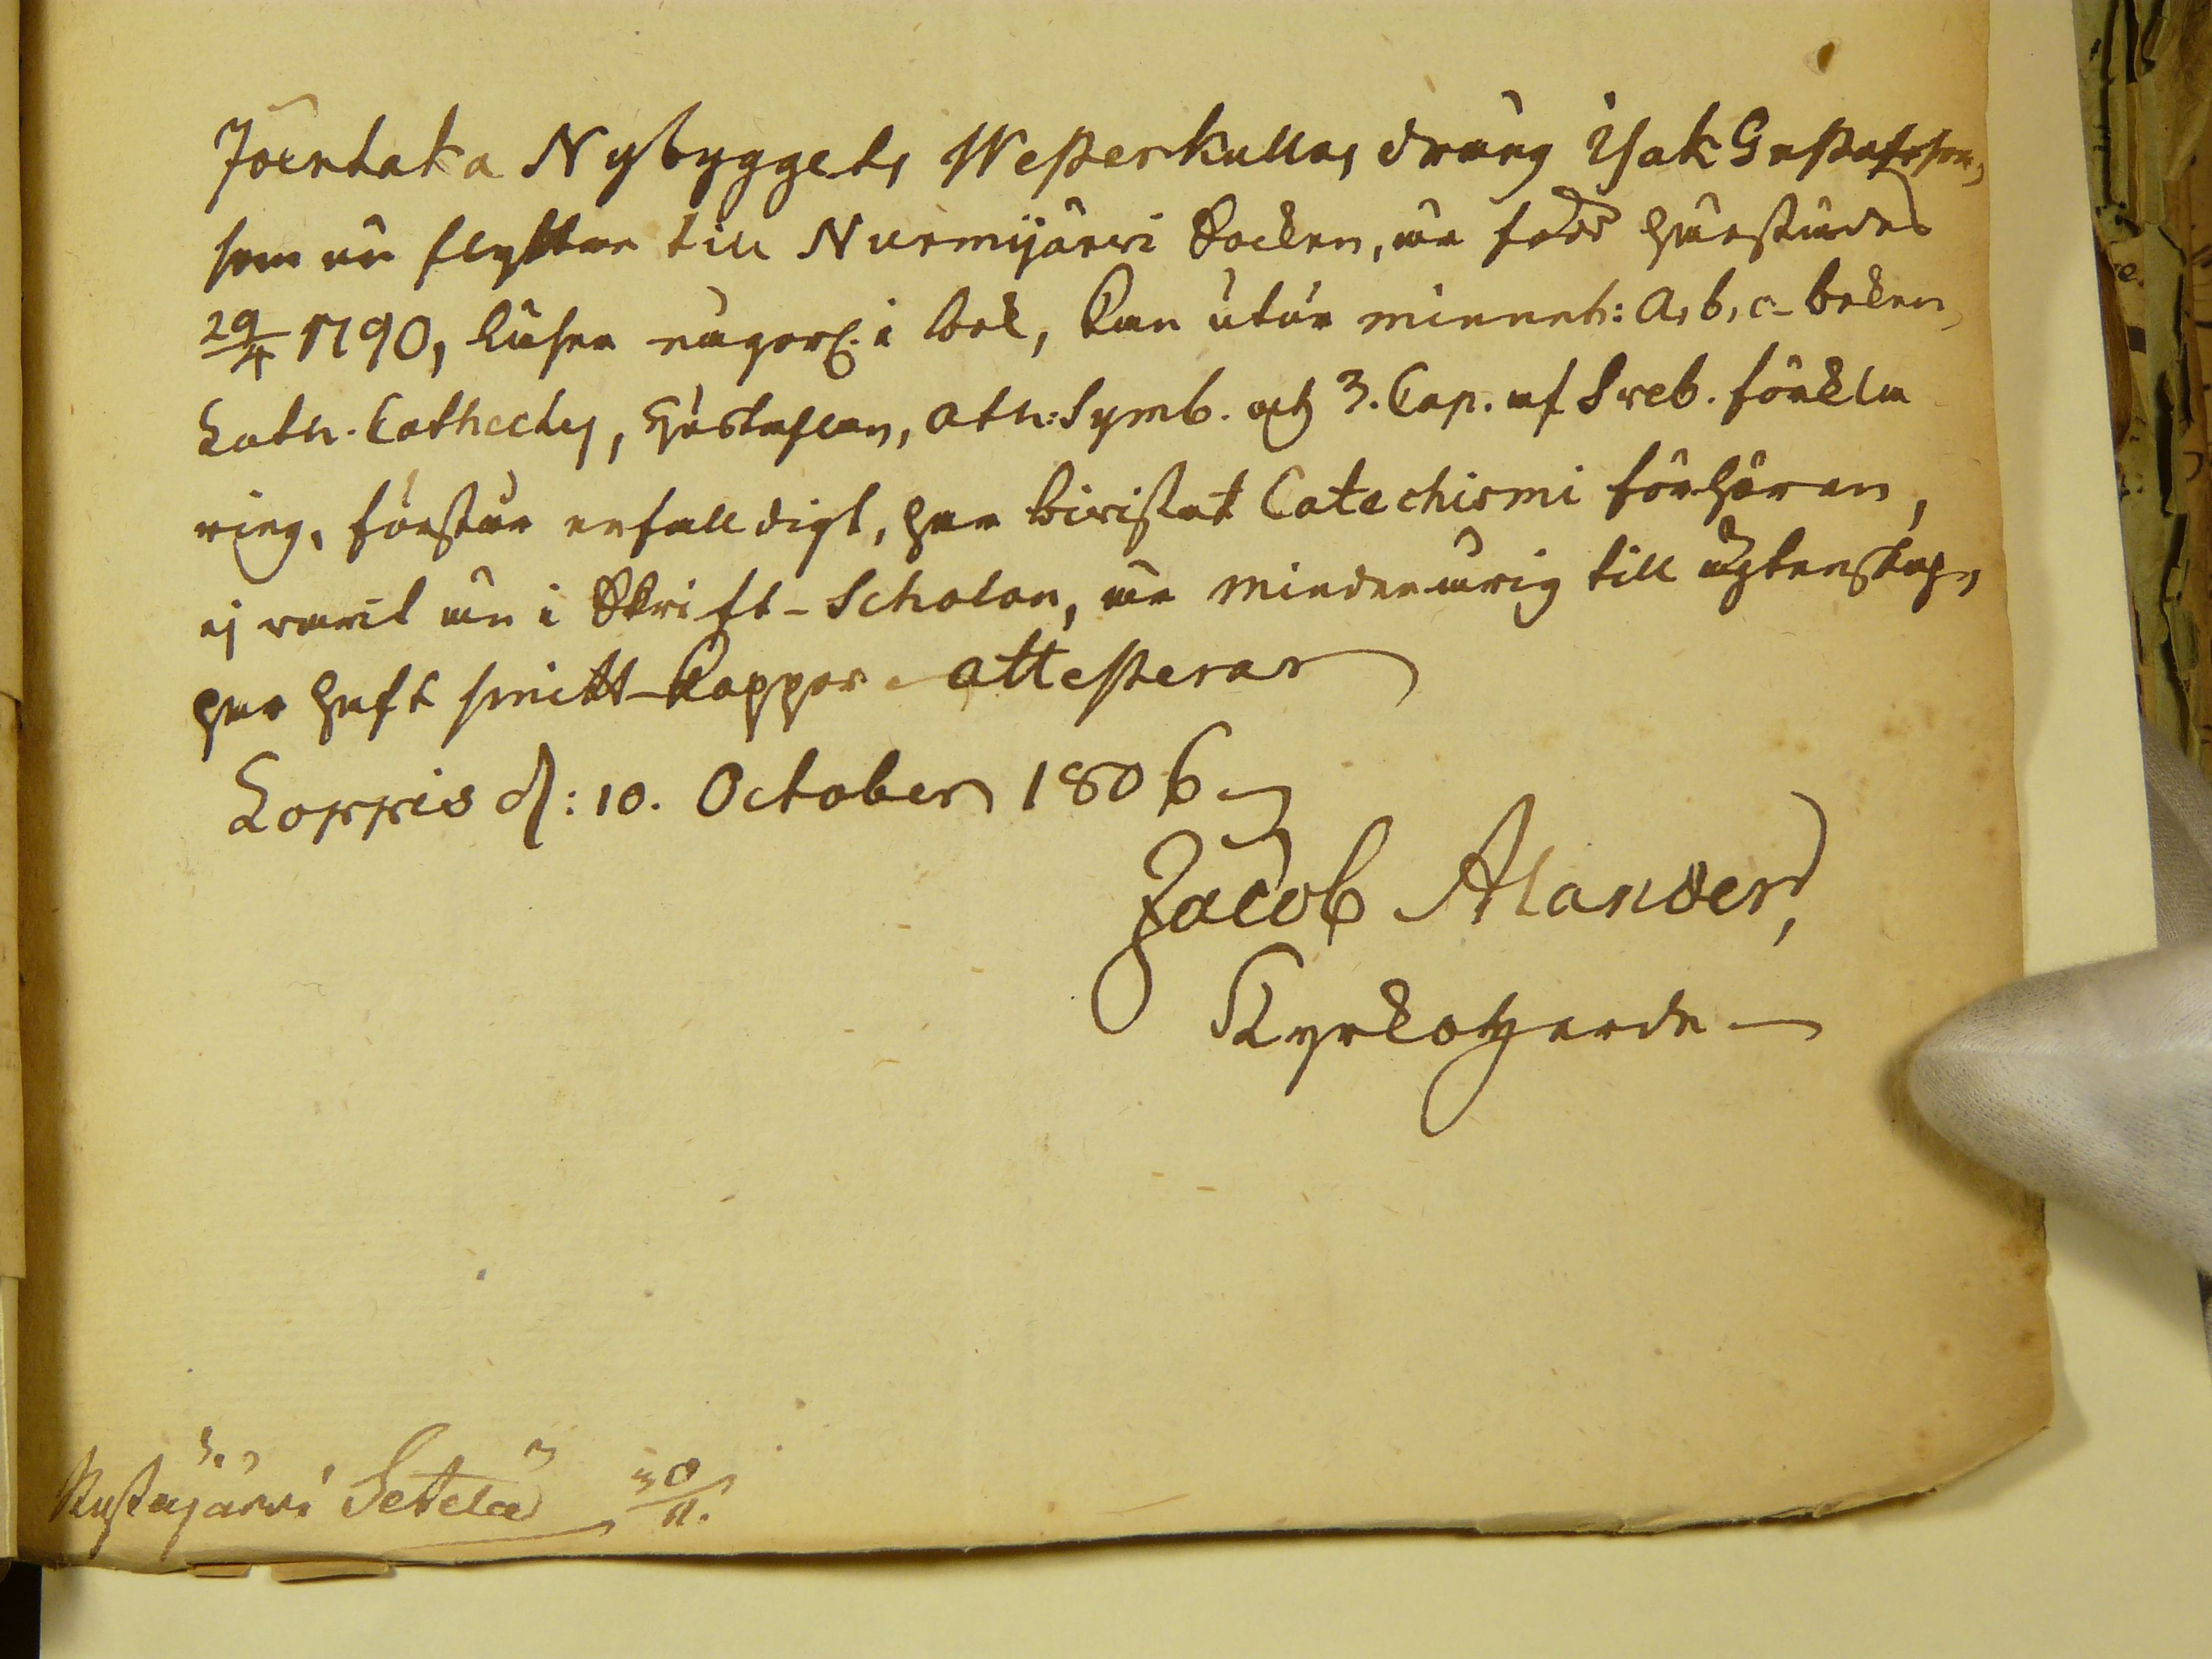 Joentaka Nybyggets Westerkullas dräng Isak Gustafsson,
som nu flyttar till Nurmijärwi Socken, är född härstädes
29/4 1790, läser någorl. i bok, kan utur minnet: a, b, c-boken,
Luth. Cathechs, Hustaflan, Ath: Symb. och 3. Cap. af Sveb. förkla
ring, förstår enfalldigt, har bivistat Catechismi förhören,
ej varit än i Skrift-Scholan, är minderårig till ägtenskap,
har haft smitt-koppor. attesterar
Loppis d: 10. October 1806
Jacob Alander,
Kyrkoherde
Rustajärvi Setelä 30/11.